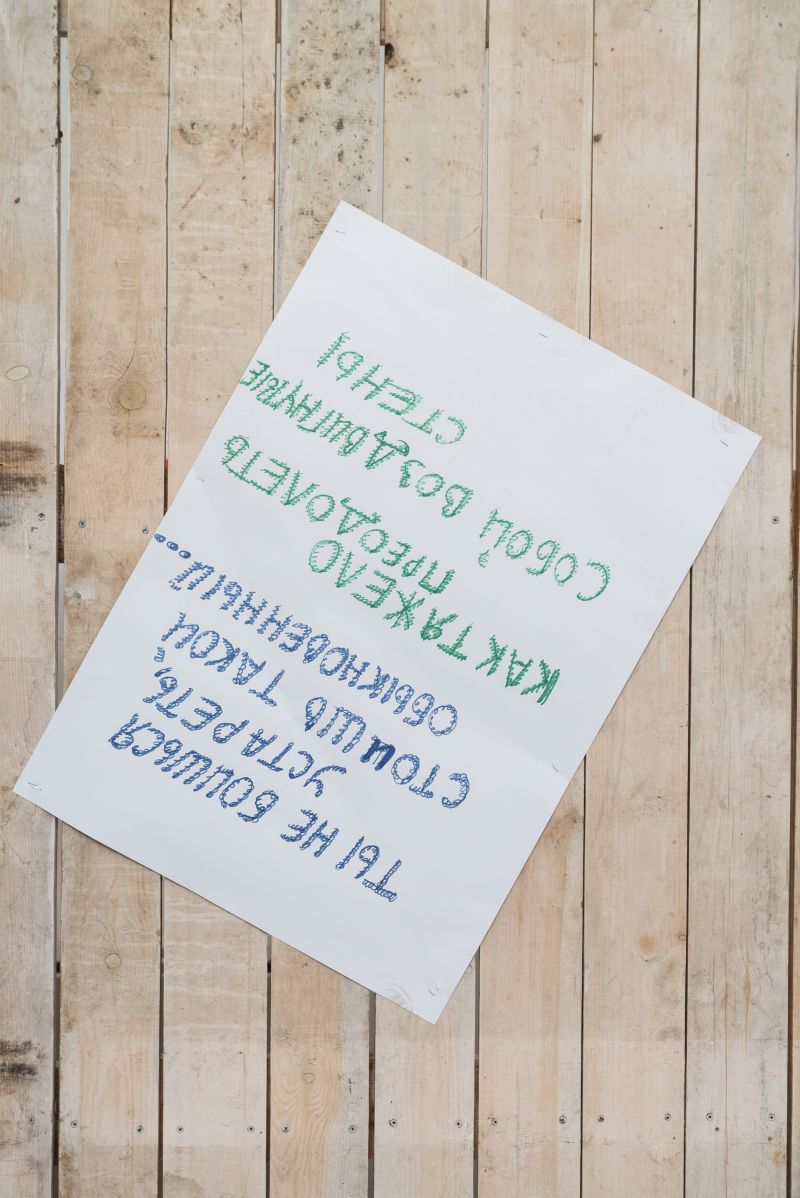 ТЫ НЕ БОИШЬСЯ
УСТАРЕТЬ,
СТОИШЬ ТАКОЙ
ОБЫКНОВЕННЫЙ...
КАК ТЯЖЕЛО
ПРЕОДОЛЕТЬ
СОБОЙ ВОЗДВИГНУТЫЕ
СТЕНЫ